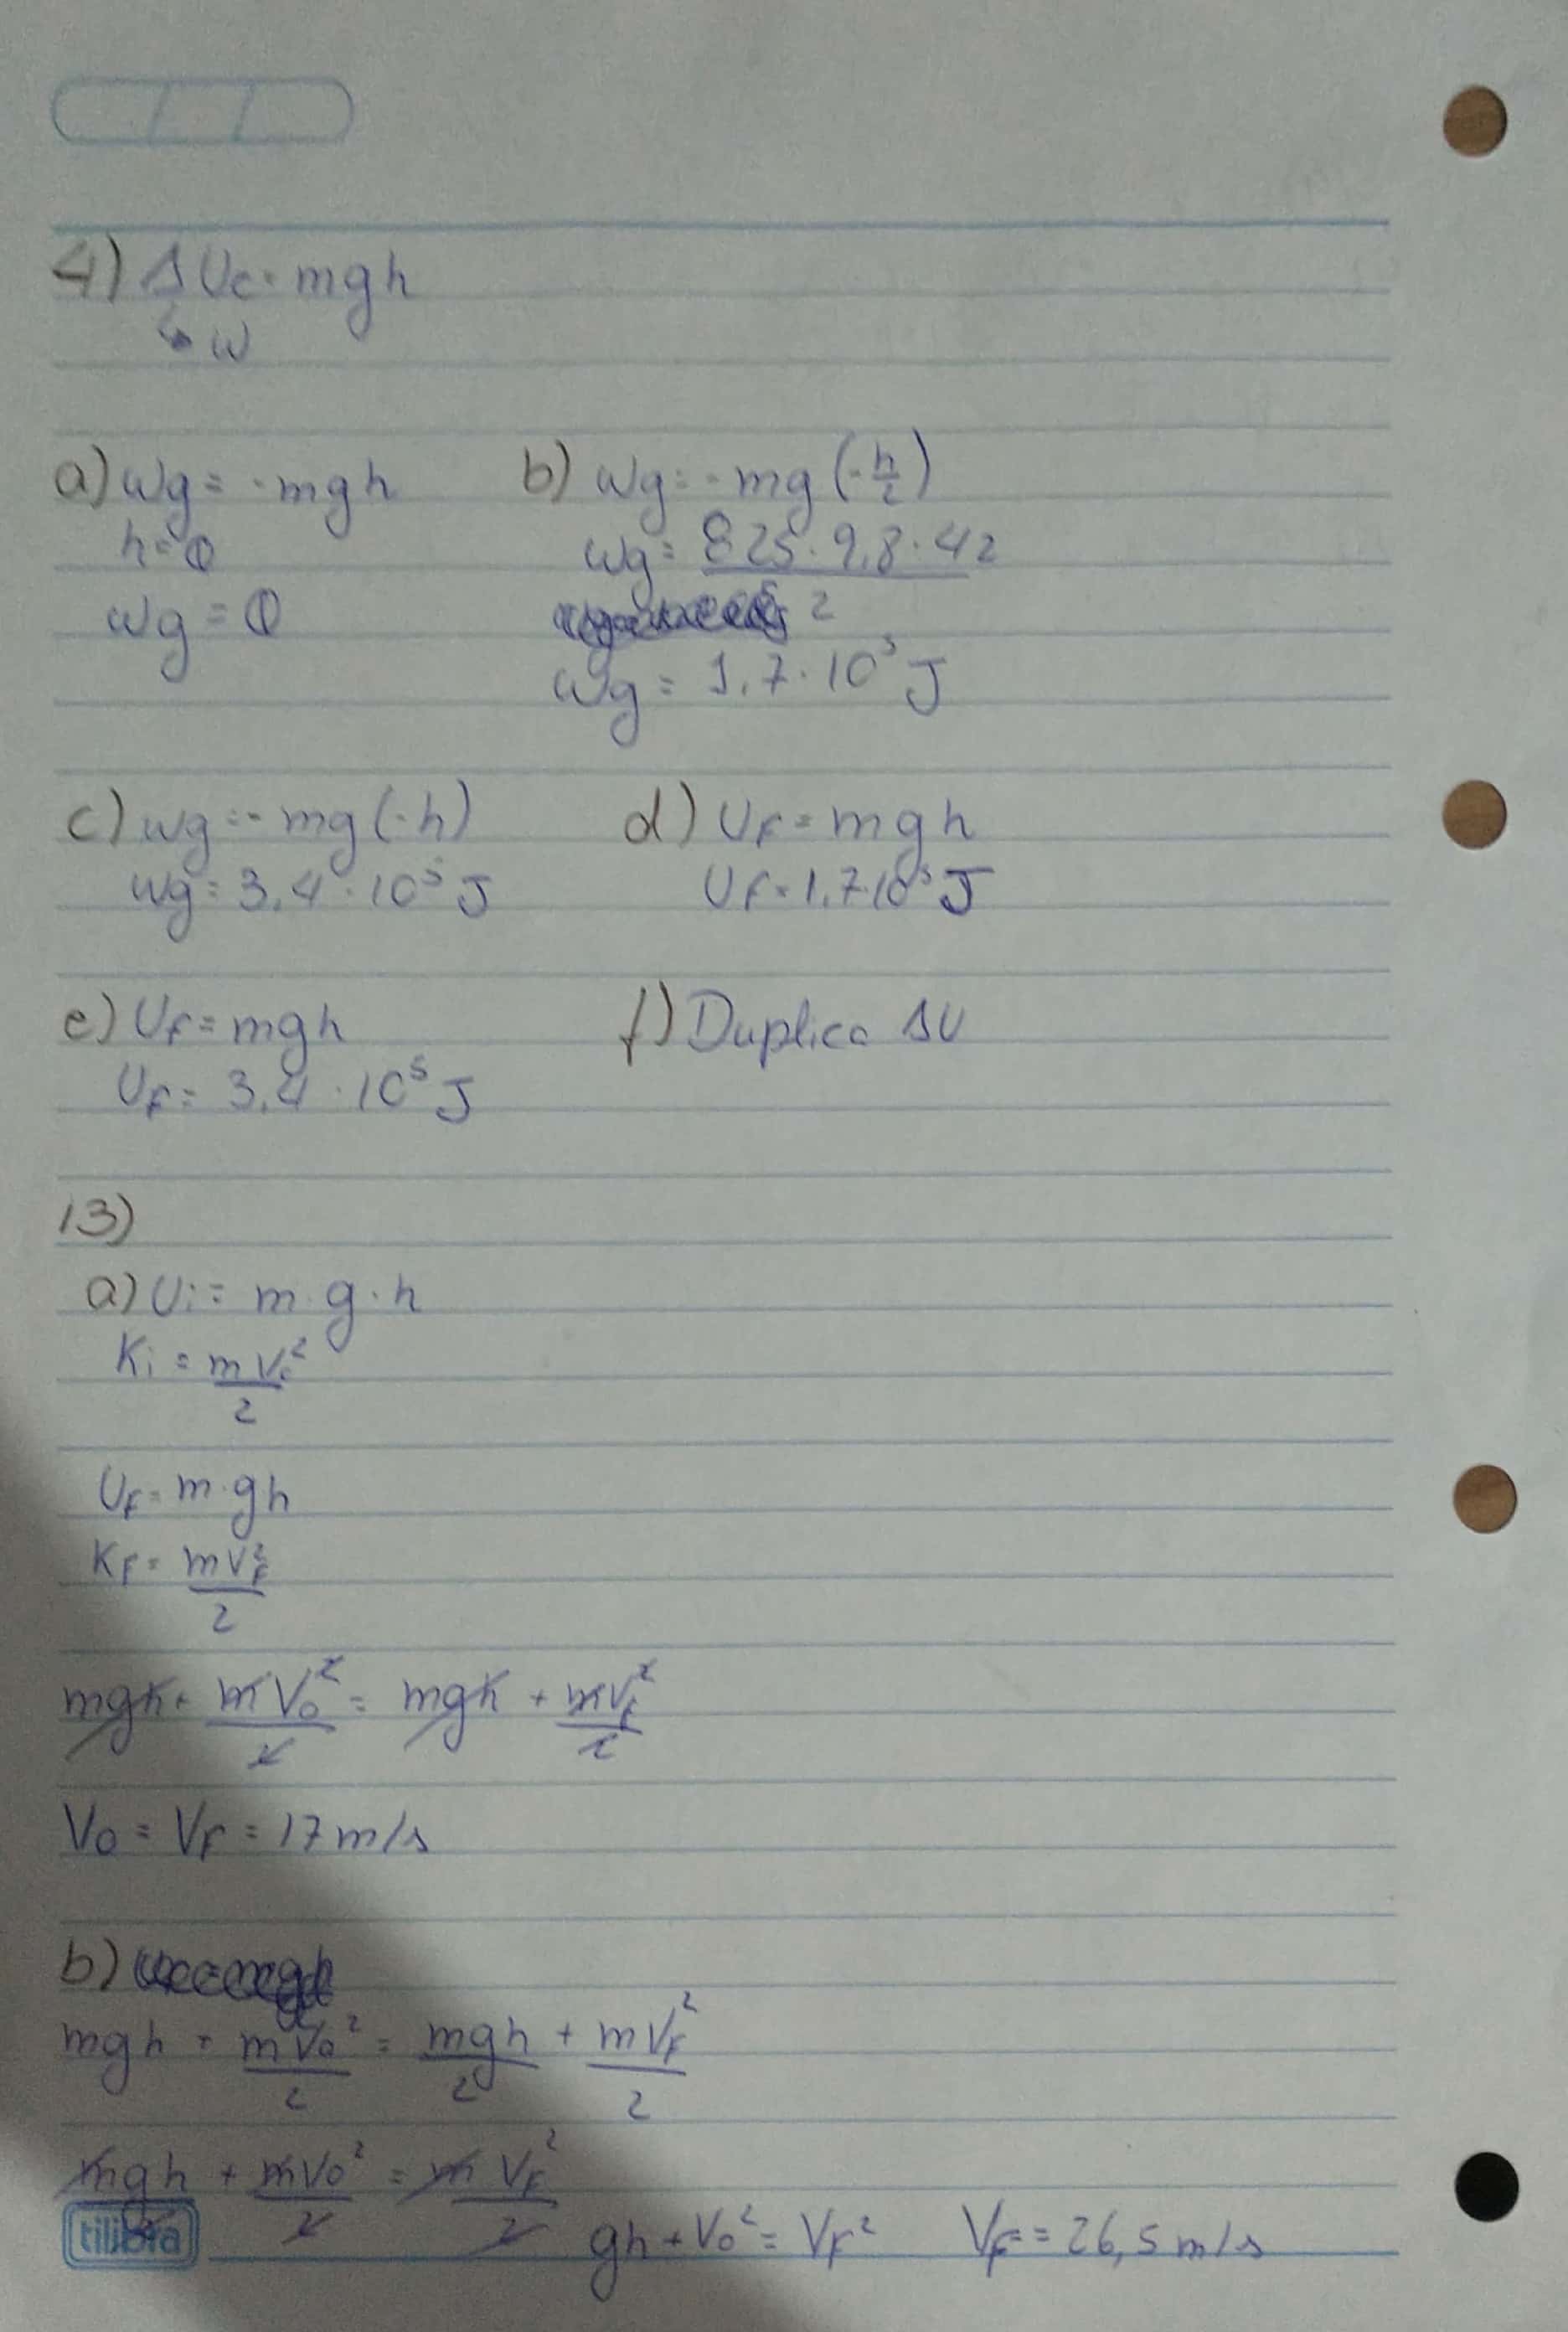 4) ΔUc = mgh
↳ W
a) Wg = -mgh
h = 0
Wg = 0
b) Wg = -mg(-h/2)
Wg = 825 · 9,8 · 42 / 2
Wg = 1,7 · 10⁵ J
c) Wg = -mg(-h)
Wg = 3,4 · 10⁵ J
d) Uf = mgh
Uf = 1,7·10⁵ J
e) Uf = mgh
Uf = 3,4 · 10⁵ J
f) Duplica ΔU
13)
a) Ui = m · g · h
Ki = mVi²/2
Uf = m·gh
Kf = mVf²/2
mgh + mVo²/2 = mgh + mVf²/2
Vo = Vf = 17 m/s
b)
mgh + mVo²/2 = mgh/2 + mVf²/2
mgh/2 + mVo²/2 = mVf²/2
gh + Vo² = Vf² Vf = 26,5 m/s
tilibra